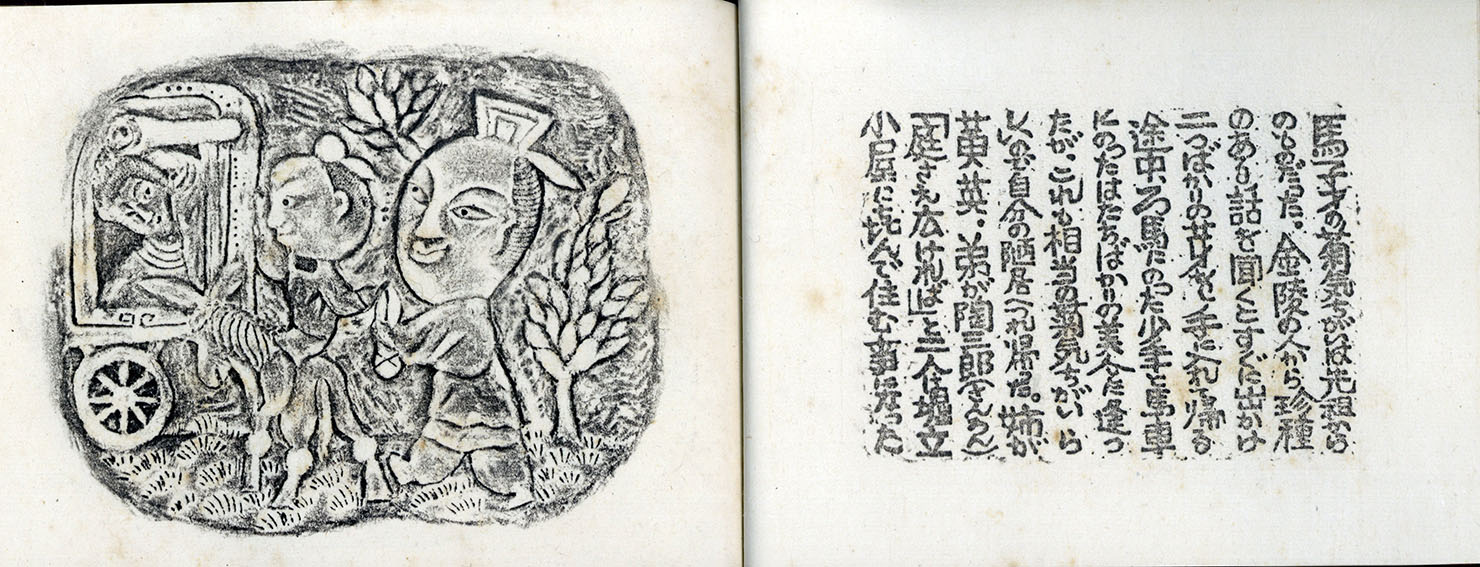 馬子才の菊気ちがいは先祖から
のものだった。金陵の人から珍種
のある話を聞くとすぐに出かけ
二つばかりの芽を手に入れて帰る
途中、ろ馬にのった少年と馬車
にのったはたちばかりの美人に逢っ
たが、これも相当の菊気ちがいら
しいので自分の陋居へつれ帰った。姉が
黄英・弟が陶三郎
「庭さえ広ければ」と三人は堀立
小屋に喜んで住む事になった